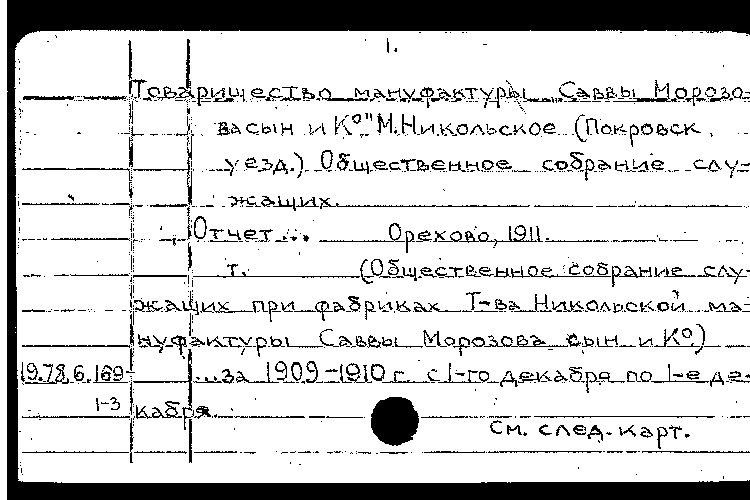 1.
Товарищество мануфактуры Саввы Морозо-
ва сын и К°" М. Никольское (Покровск.
уезд.) Общественное собрание слу-
жащих.
Отчет... Орехово, 1911.
т. (Общественное собрание слу-
жащих при фабриках Т-ва Никольской ма-
нуфактуры Саввы Морозова сын и К°)
19.78.6.169- ...за 1909-1910 г. с 1-го декабря по 1-е де-
1-3 кабря.
См. след. карт.